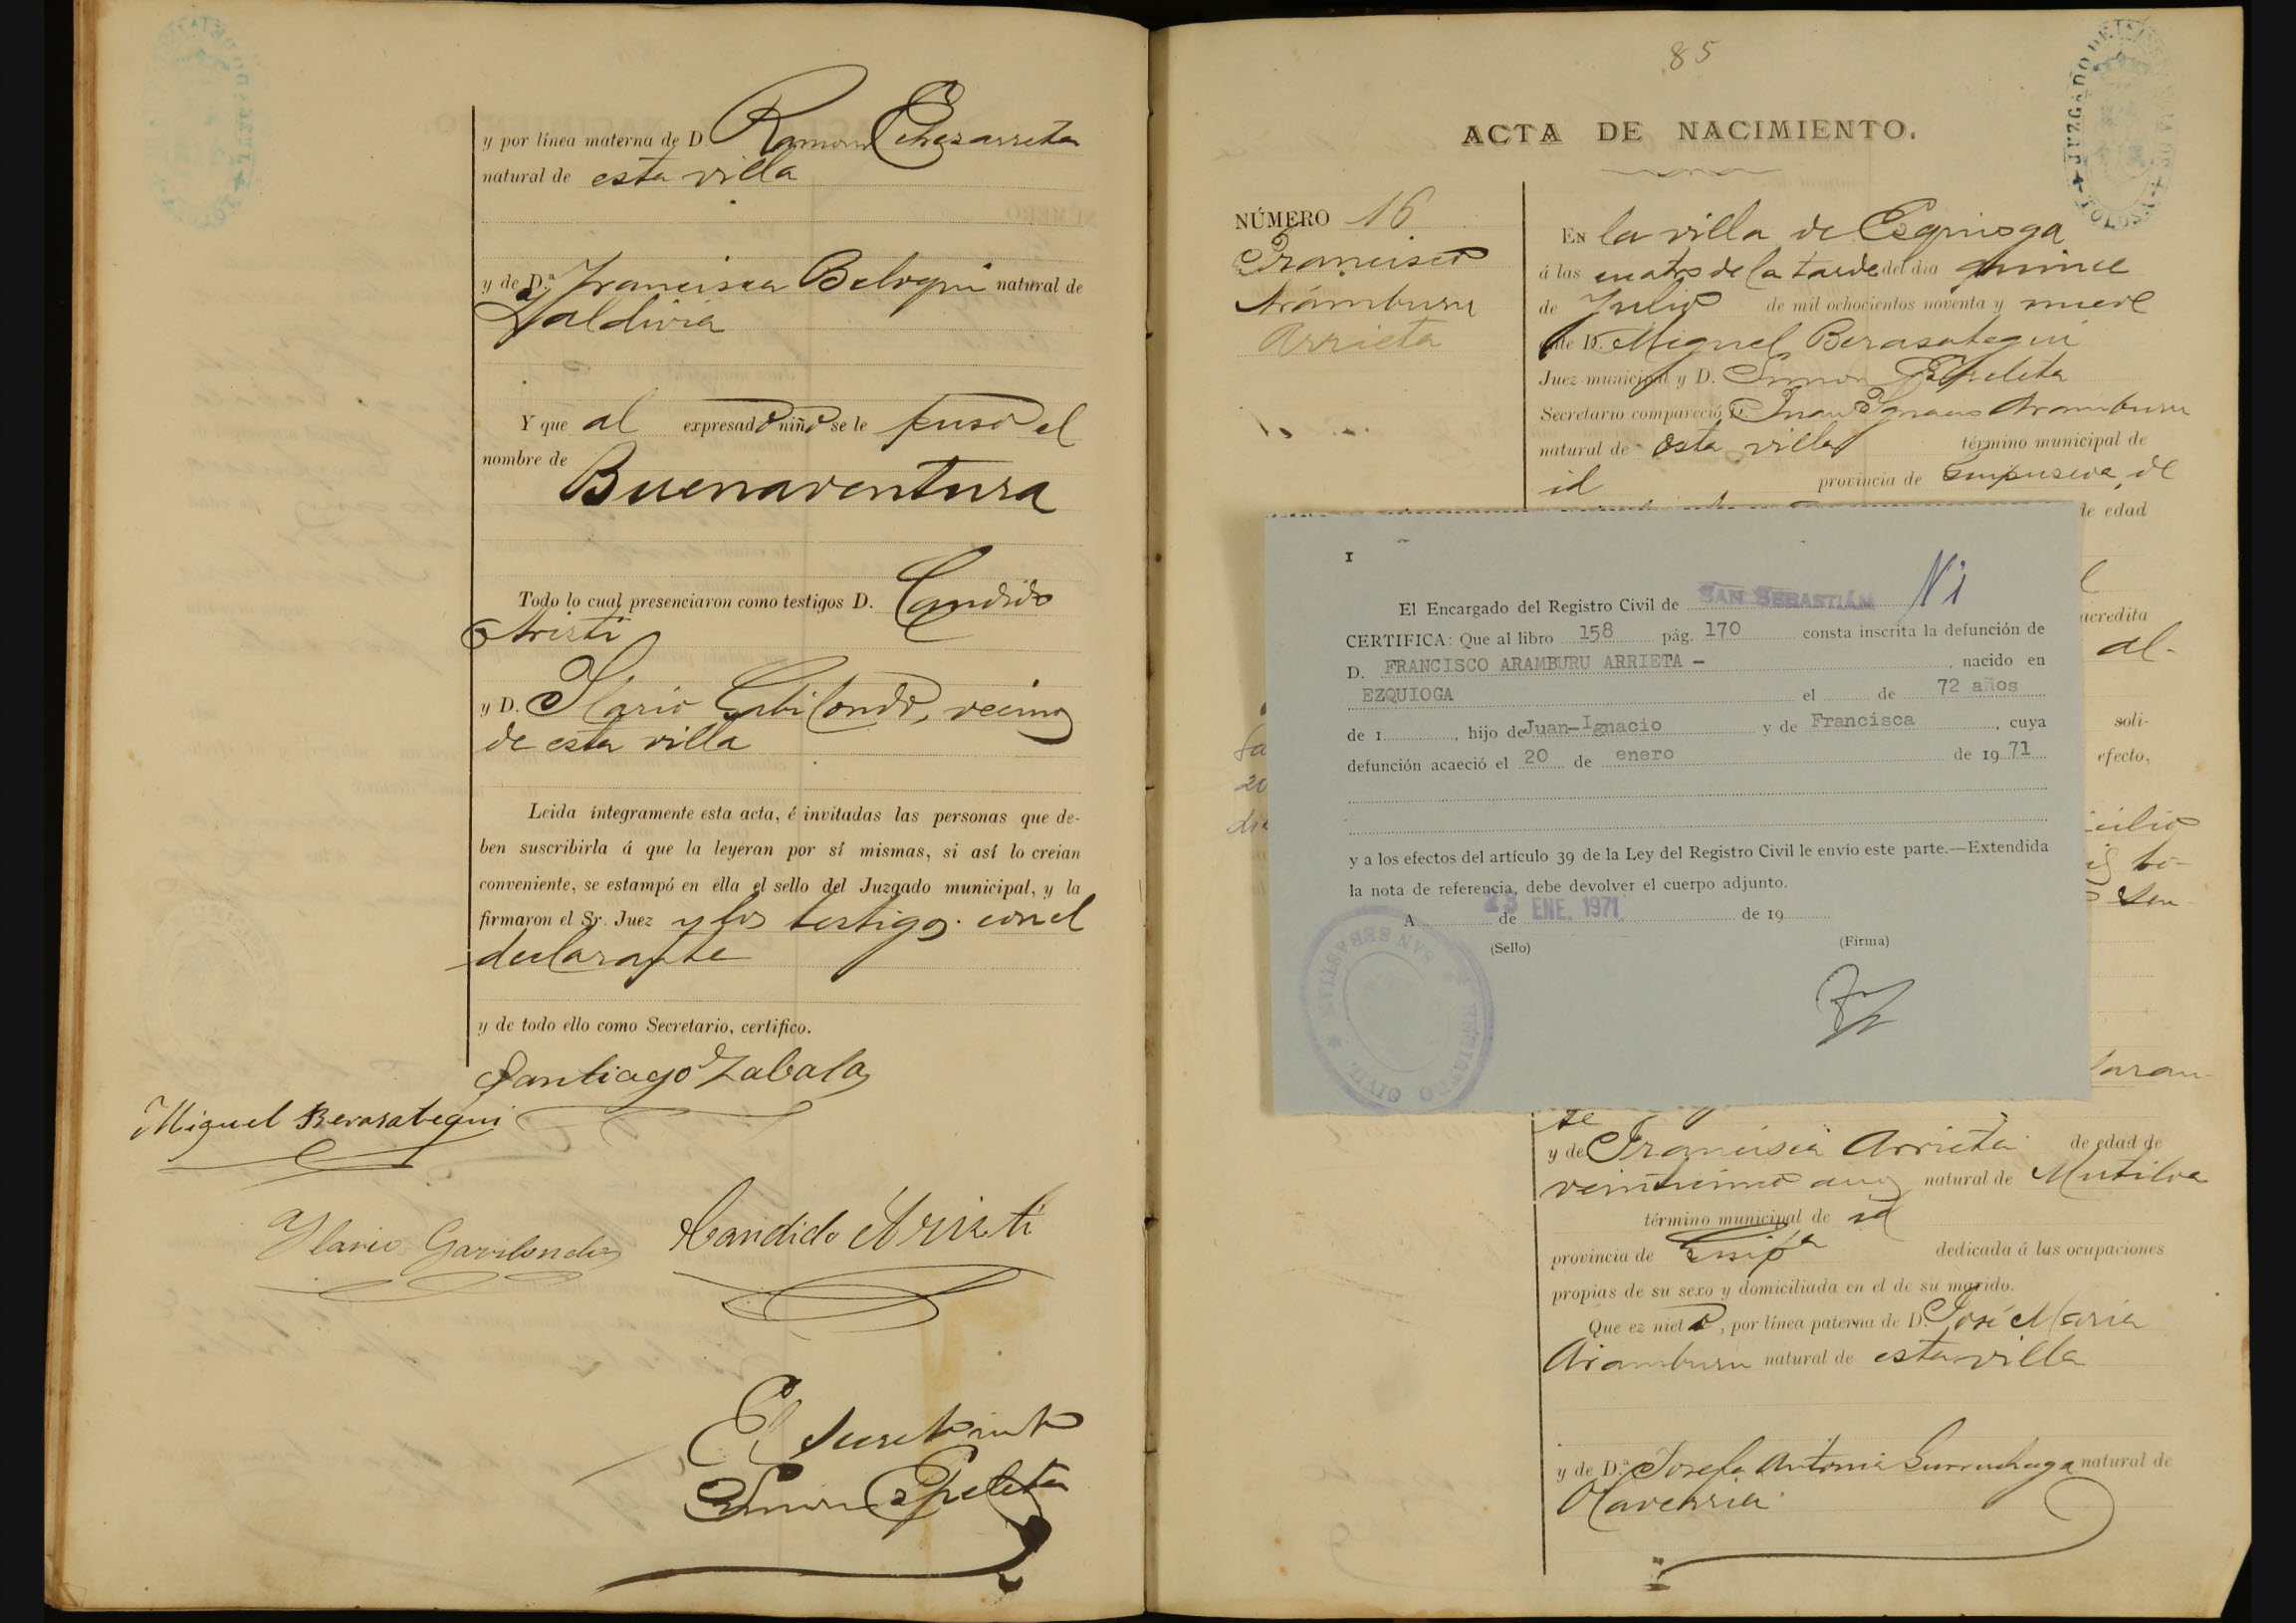 y por línea materna de D. Ramon Echezarreta
natural de esta villa
y de D.ª Francisca Beloqui natural de
Zaldivia
Y que al expresado niño se le puso el
nombre de
Buenaventura
Todo lo cual presenciaron como testigos D. Candido
Aristi
y D. Ilario Gabilondo, vecinos
de esta villa
Leida íntegramente esta acta, é invitadas las personas que de-
ben suscribirla á que la leyeran por sí mismas, si así lo creian
conveniente, se estampó en ella el sello del Juzgado municipal, y la
firmaron el Sr. Juez y los testigos con el
declarante
y de todo ello como Secretario, certifico.
Santiago Zabala
Miguel Berasategui
Ilario Gavilondo Candido Aristi
El Secretario
Simon Espeleta
85
ACTA DE NACIMIENTO.
JUZGADO DE TOLOSA
NÚMERO 16
Francisco
Aramburu
Arrieta
EN la villa de Ezquioga
á las cuatro de la tarde del dia quince
de Julio de mil ochocientos noventa y nueve
ante D. Miguel Berasategui
Juez municipal y D. Simon Espeleta
Secretario compareció D. Juan Ygnacio Aramburu
natural de esta villa término municipal de
id provincia de Guipuzcoa, de
de edad
acredita
al-
soli-
efecto,
I
El Encargado del Registro Civil de SAN SEBASTIÁN Nº 1
CERTIFICA: Que al libro 158 pág. 170 consta inscrita la defunción de
D. FRANCISCO ARAMBURU ARRIETA - , nacido en
EZQUIOGA el de 72 años
de 1 , hijo de Juan-Ignacio y de Francisca , cuya
defunción acaeció el 20 de enero de 19 71
y a los efectos del artículo 39 de la Ley del Registro Civil le envío este parte.—Extendida
la nota de referencia, debe devolver el cuerpo adjunto.
A 23 de ENE. 1971 de 19
(Sello) (Firma)
REGISTRO CIVIL SAN SEBASTIÁN
te
y de Francisca Arrieta de edad de
veinticinco años natural de Mutiloa
término municipal de id
provincia de Guipª dedicada á las ocupaciones
propias de su sexo y domiciliada en el de su marido.
Que ez nieto, por línea paterna de D. José Maria
Aramburu natural de esta villa
y de D.ª Josefa Antonia Gurruchaga natural de
Olaverria